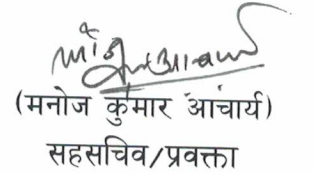 (मनोज कुमार आचार्य)
सहसचिव/प्रवक्ता